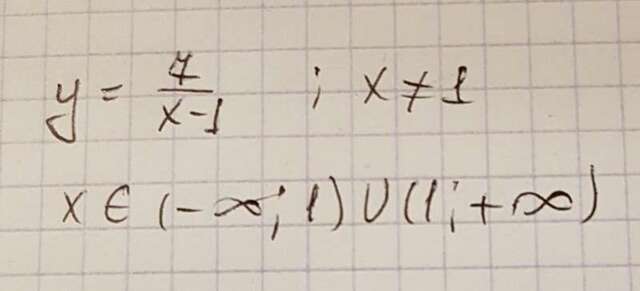 y = 7/(x-1) ; x ≠ 1
x ∈ (-∞; 1) ∪ (1; +∞)